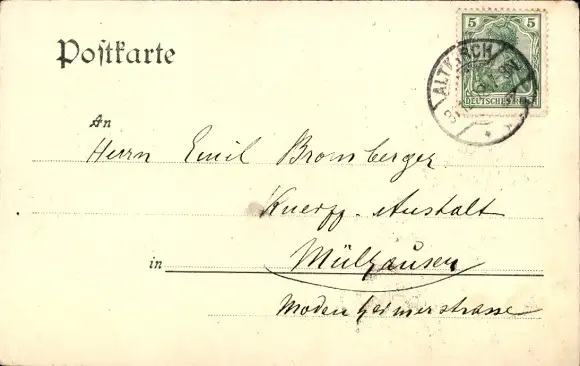 Postkarte
5 5
DEUTSCHES REICH
ALTKIRCH
An
Herrn Emil Bromberger
Anstalt
in Mülhausen
Modenheimerstrasse